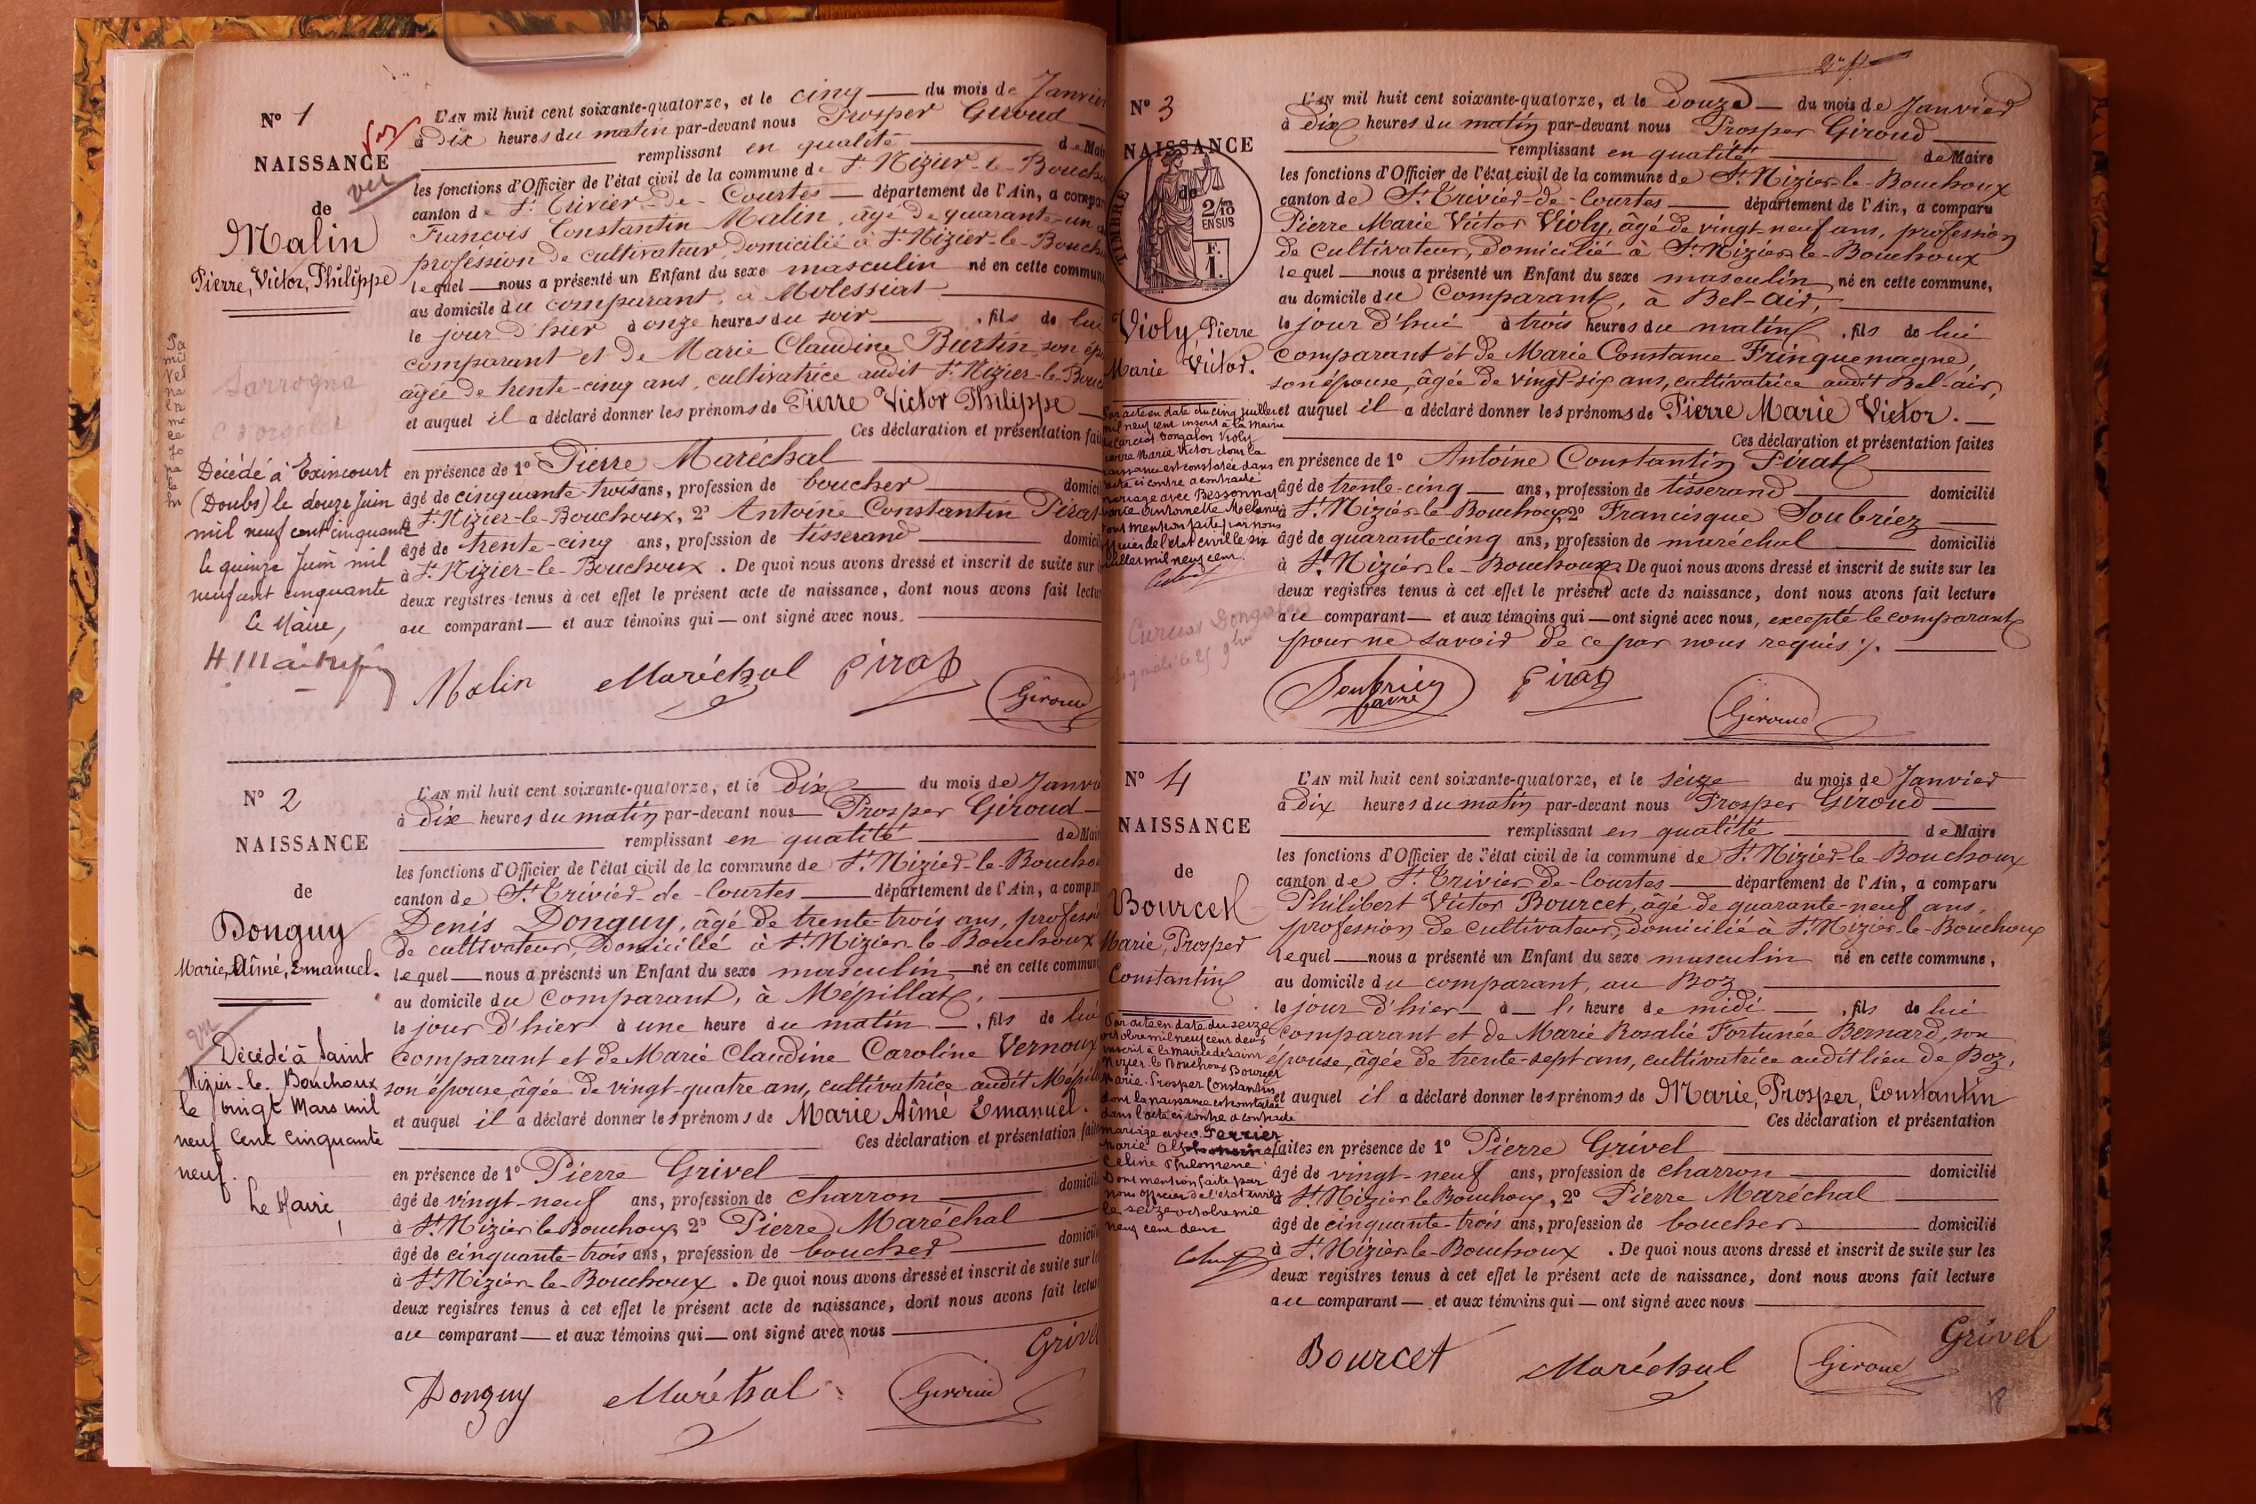 N° 1
NAISSANCE
de
Malin
Pierre, Victor, Philippe
Décédé à Exincourt
(Doubs) le douze Juin
mil neuf cent cinquante
le quinze Juin mil
neuf cent cinquante
Le Maire,
L'AN mil huit cent soixante-quatorze, et le cinq du mois de Janvier
à Dix heures du matin par-devant nous Prosper Giroud
remplissant en qualité de Mai
les fonctions d'Officier de l'état civil de la commune de St Nizier-le-Boucho
canton de St Trivier-de-Courtes département de l'Ain, a compar
François Constantin Malin, âgé de quarante-un a
profession de cultivateur, domicilié à St Nizier-le-Boucho
lequel nous a présenté un Enfant du sexe masculin né en cette commune
au domicile du comparant, à Molessiat
le jour d'hier à onze heures du soir, fils de lui
comparant et de Marie Claudine Burtin, son épo
âgée de trente-cinq ans, cultivatrice audit St Nizier-le-Bouc
et auquel il a déclaré donner les prénoms de Pierre Victor Philippe
Ces déclaration et présentation fait
en présence de 1° Pierre Maréchal
âgé de cinquante-trois ans, profession de boucher domici
à St Nizier-le-Bouchoux, 2° Antoine Constantin Pirat
âgé de trente-cinq ans, profession de tisserand domicil
à St Nizier-le-Bouchoux. De quoi nous avons dressé et inscrit de suite sur l
deux registres tenus à cet effet le présent acte de naissance, dont nous avons fait lectu
au comparant et aux témoins qui ont signé avec nous.
Malin Maréchal Pirat Giroud
N° 2
NAISSANCE
de
Donguy
Marie, Aîmé, Emanuel.
Décédé à Saint
Nizier-le-Bouchoux
le vingt Mars mil
neuf cent cinquante
neuf.
Le Maire,
L'AN mil huit cent soixante-quatorze, et le Dix du mois de Janvi
à Dix heures du matin par-devant nous Prosper Giroud
remplissant en qualité de Mai
les fonctions d'Officier de l'état civil de la commune de St Nizier-le-Boucho
canton de St Trivier-de-Courtes département de l'Ain, a compar
Denis Donguy, âgé de trente-trois ans, professi
de cultivateur, domicilié à St Nizier-le-Bouchoux
lequel nous a présenté un Enfant du sexe masculin né en cette commun
au domicile du comparant, à Mépillat,
le jour d'hier à une heure du matin, fils de lui
comparant et de Marie Claudine Caroline Vernoux
son épouse, âgée de vingt-quatre ans, cultivatrice audit Mépill
et auquel il a déclaré donner les prénoms de Marie Aîmé Emanuel.
Ces déclaration et présentation faite
en présence de 1° Pierre Grivel
âgé de vingt-neuf ans, profession de charron domicili
à St Nizier le Bouchoux, 2° Pierre Maréchal
âgé de cinquante-trois ans, profession de boucher domicili
à St Nizier-le-Bouchoux. De quoi nous avons dressé et inscrit de suite sur le
deux registres tenus à cet effet le présent acte de naissance, dont nous avons fait lectur
au comparant et aux témoins qui ont signé avec nous
Grivel
Donguy Maréchal Giroud
N° 3
NAISSANCE
de
TIMBRE
2/10
EN SUS
F.
1.
Violy, Pierre
Marie Victor.
mil neuf cent inscrit à la Mairie
Pierre Marie Victor dont la
naissance est constatée dans
l'acte ci contre a contracté
mariage avec Bessonnat
Dont mention faite par nous
officier de l'état civil le six
juillet mil neuf cent
L'AN mil huit cent soixante-quatorze, et le douze du mois de Janvier
à dix heures du matin par-devant nous Prosper Giroud
remplissant en qualité de Maire
les fonctions d'Officier de l'état civil de la commune de St Nizier-le-Bouchoux
canton de St Trivier-de-Courtes département de l'Ain, a comparu
Pierre Marie Victor Violy, âgé de vingt neuf ans, profession
de cultivateur, domicilié à St Nizier-le-Bouchoux
lequel nous a présenté un Enfant du sexe masculin, né en cette commune,
au domicile du comparant, à Bel-air,
le jour d'hui à trois heures du matin, fils de lui
comparant et de Marie Constance Frinquemagne,
son épouse, âgée de vingt-six ans, cultivatrice audit Bel-air,
et auquel il a déclaré donner les prénoms de Pierre Marie Victor.
Ces déclaration et présentation faites
en présence de 1° Antoine Constantin Pirat
âgé de trente-cinq ans, profession de tisserand domicilié
à St Nizier-le-Bouchoux, 2° Francisque Soubriez
âgé de quarante-cinq ans, profession de maréchal domicilié
à St Nizier-le-Bouchoux. De quoi nous avons dressé et inscrit de suite sur les
deux registres tenus à cet effet le présent acte de naissance, dont nous avons fait lecture
au comparant et aux témoins qui ont signé avec nous, excepté le comparant
pour ne savoir de ce par nous requis.
Pirat Giroud
N° 4
NAISSANCE
de
Bourcet
Marie, Prosper
Constantin
Par acte en date du seize
octobre mil neuf cent deux
inscrit à la mairie de Saint
Nizier-le-Bouchoux Bourcet
Marie-Prosper Constantin
dont la naissance est constatée
dans l'acte ci-contre a contracté
mariage avec Perrier
Céline Philomène
Dont mention faite par
nous officier de l'état civil
le seize octobre mil
neuf cent deux
L'AN mil huit cent soixante-quatorze, et le seize du mois de Janvier
à Dix heures du matin par-devant nous Prosper Giroud
remplissant en qualité de Maire
les fonctions d'Officier de l'état civil de la commune de St Nizier-le-Bouchoux
canton de St Trivier-de-Courtes département de l'Ain, a comparu
Philibert Victor Bourcet, âgé de quarante-neuf ans,
profession de cultivateur, domicilié à St Nizier-le-Bouchoux
lequel nous a présenté un Enfant du sexe masculin né en cette commune,
au domicile du comparant, au Boz
le jour d'hier à l' heure de midi, fils de lui
comparant et de Marie Rosalie Fortunée Bernard, son
épouse, âgée de trente-sept ans, cultivatrice audit lieu de Boz,
et auquel il a déclaré donner les prénoms de Marie, Prosper, Constantin
Ces déclaration et présentation
faites en présence de 1° Pierre Grivel
âgé de vingt-neuf ans, profession de charron domicilié
à St Nizier le Bouchoux, 2° Pierre Maréchal
âgé de cinquante-trois ans, profession de boucher domicilié
à St Nizier-le-Bouchoux. De quoi nous avons dressé et inscrit de suite sur les
deux registres tenus à cet effet le présent acte de naissance, dont nous avons fait lecture
au comparant et aux témoins qui ont signé avec nous
Bourcet Maréchal Giroud Grivel